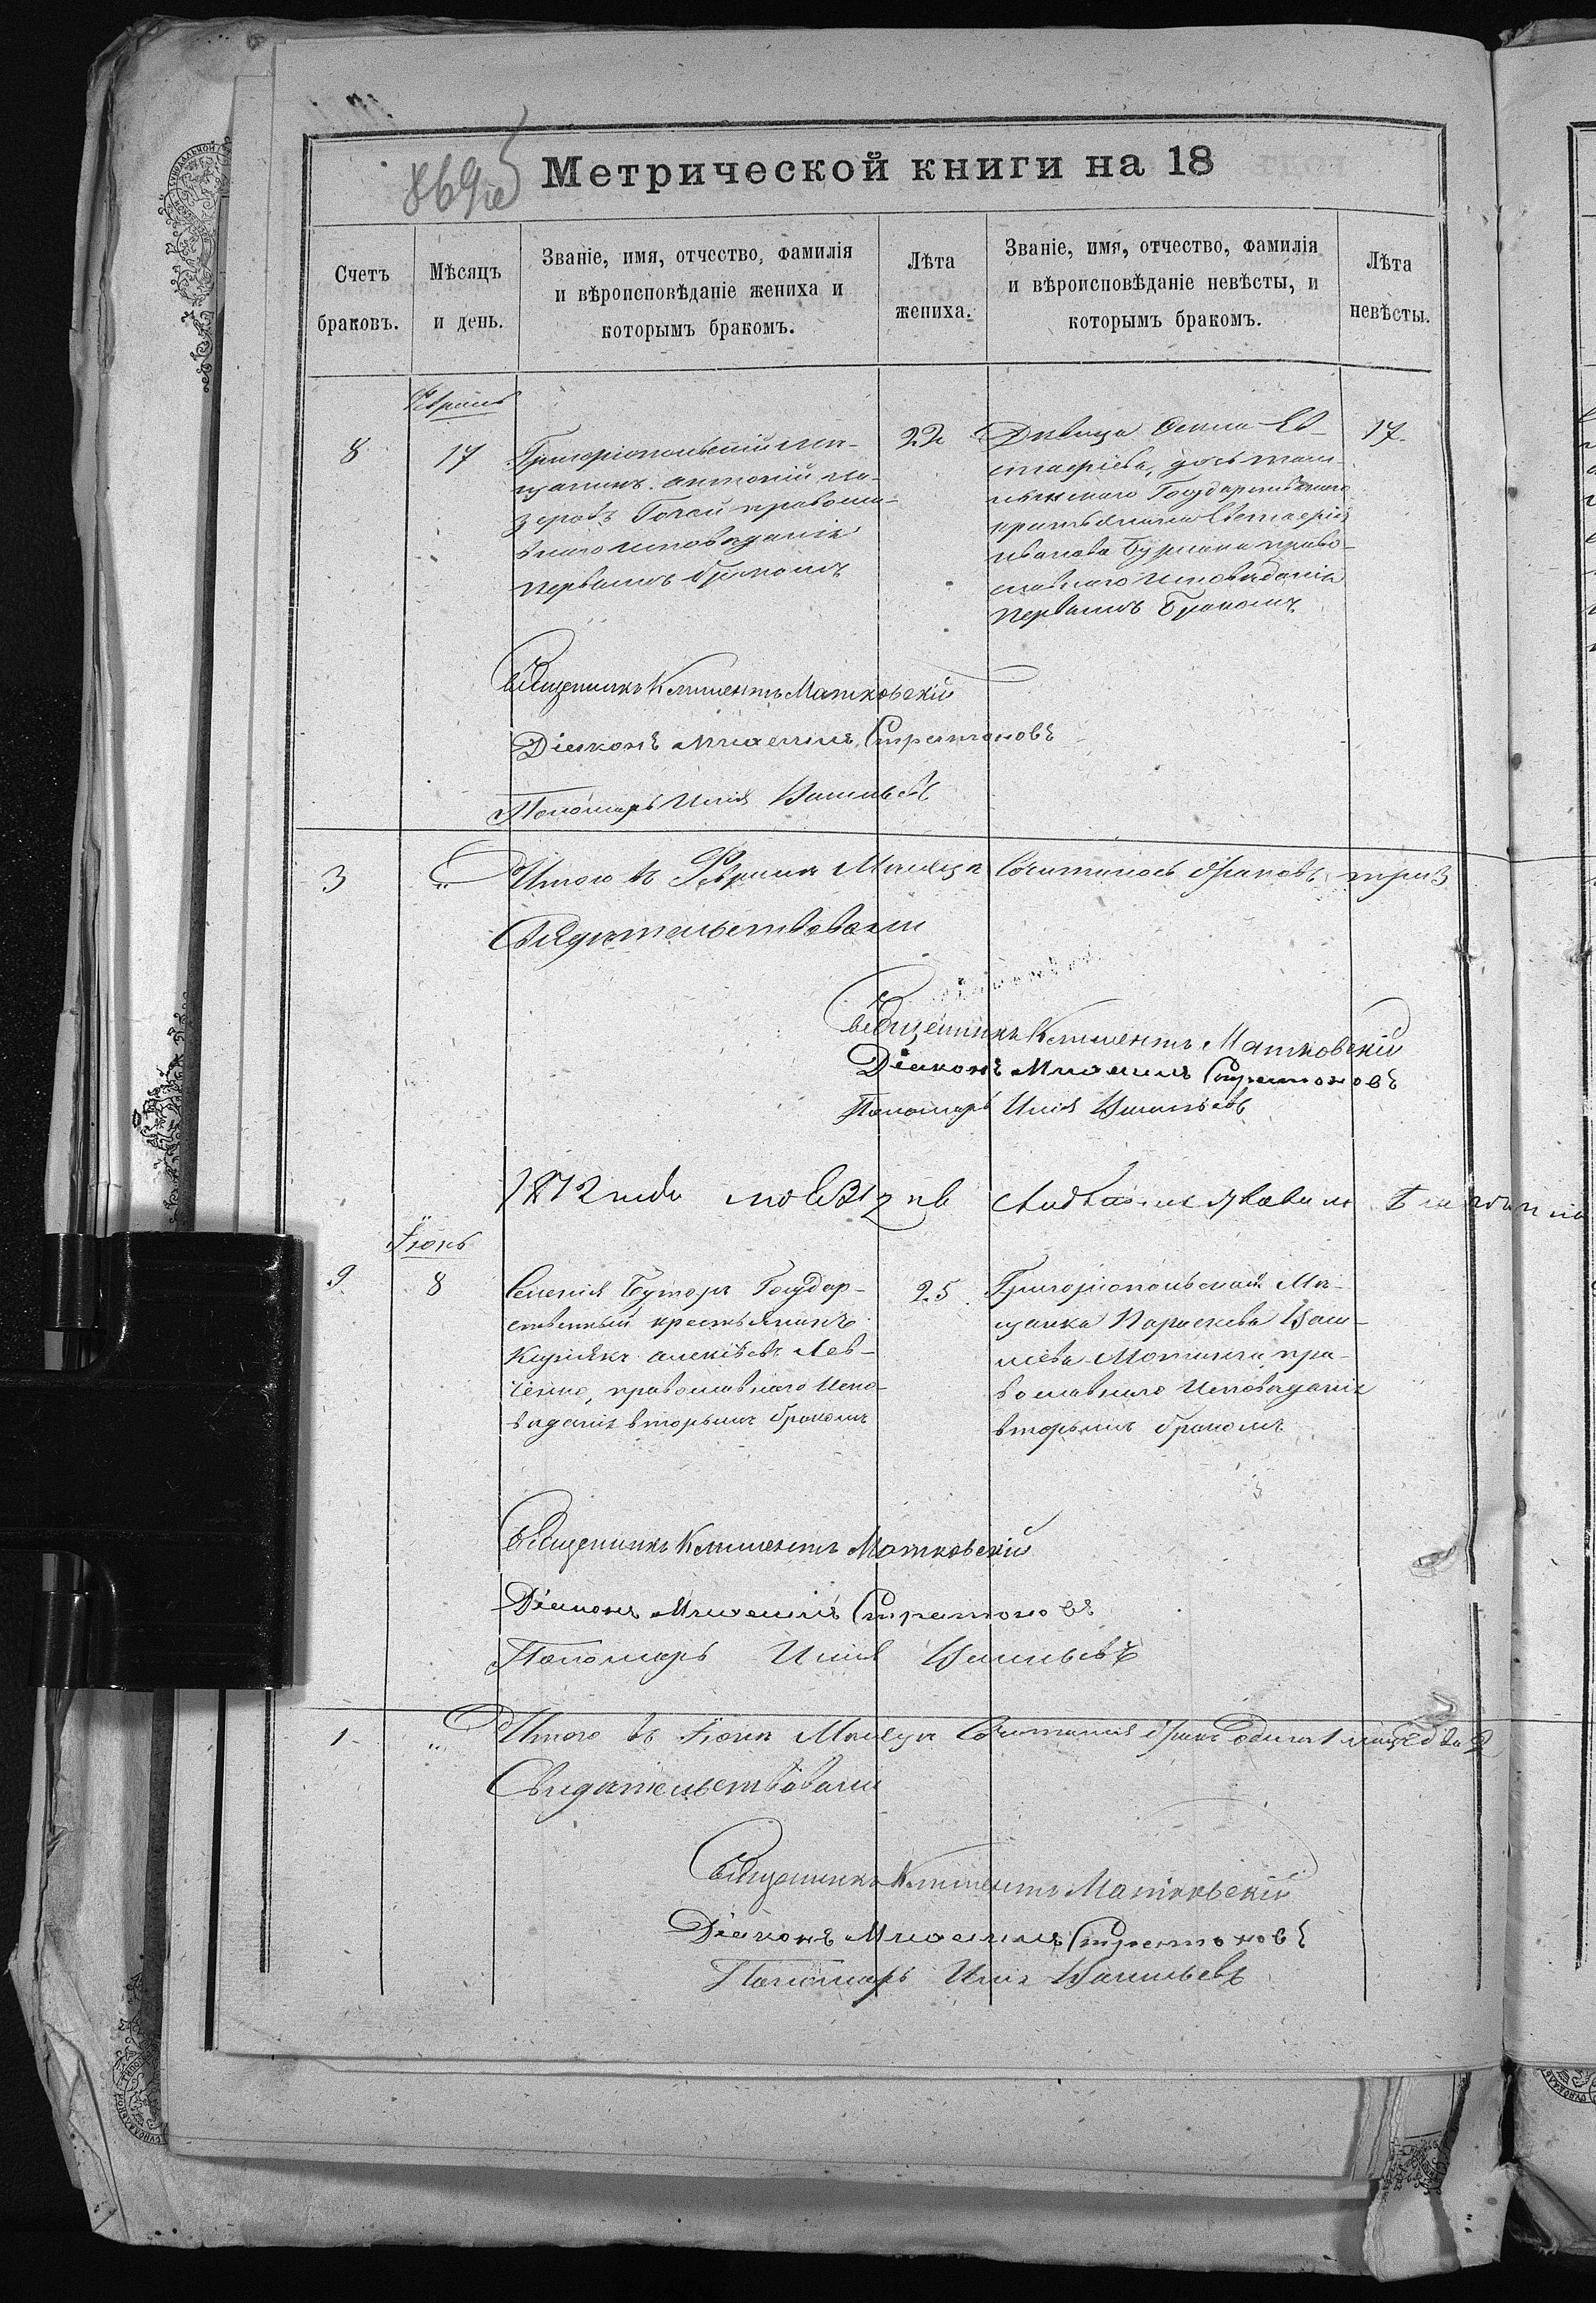 869
Метрической книги на 18
Счетъ браковъ.
Мѣсяцъ и день.
Званіе, имя, отчество, фамилія
и вѣроисповѣданіе жениха и
которымъ бракомъ.
Лѣта жениха.
Званіе, имя, отчество, фамилія
и вѣроисповѣданіе невѣсты, и
которымъ бракомъ.
Лѣта невѣсты.
8
17
Григоріопольскій мѣ-
щанинъ Антоній
правосла-
внаго исповѣданія
первымъ бракомъ
22
Дѣвица Ев-
стафіева, дочь
Государственнаго
крестьянина Евстафія
Иванова право-
славнаго исповѣданія
первымъ бракомъ
17
Священникъ Климентъ Матковскій
Діаконъ Михаилъ Стратоновъ
Пономарь Илія Васильевъ
3
Итого въ Февралѣ Мѣсяцѣ Сочеталось браковъ три 3
Свидѣтельствовали
Священникъ Климентъ Матковскій
Діаконъ Михаилъ Стратоновъ
Пономарь Илія Васильевъ
1872 года
Іюнь
9
8
Селенія Буторъ Государ-
ственный крестьянинъ
Киріякъ Алексѣевъ Лев-
ченко, православнаго Испо-
вѣданія вторымъ бракомъ
25
Григоріопольская Мѣ-
щанка Параскева Васи-
ліева православнаго Исповѣданія
вторымъ бракомъ
Священникъ Климентъ Матковскій
Діаконъ Михаилъ Стратоновъ
Пономарь Илія Васильевъ
1
Итого въ Іюнѣ Мѣсяцѣ Сочетался бракъ одинъ 1 лицъ два 2
Свидѣтельствовали
Священникъ Климентъ Матковскій
Діаконъ Михаилъ Стратоновъ
Пономарь Илія Васильевъ